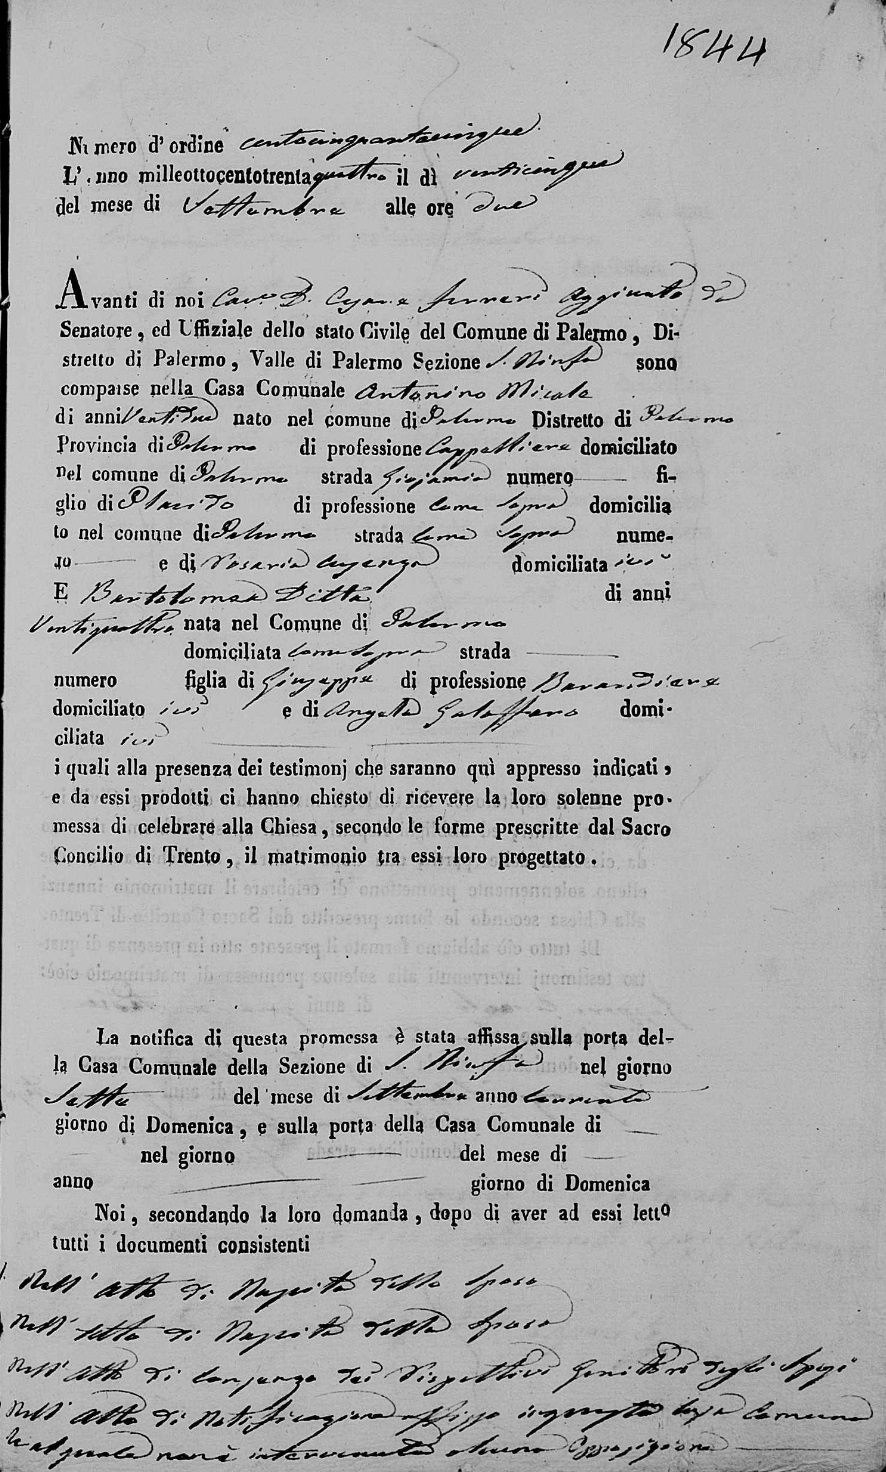 1844
Numero d'ordine centocinquantacinque
L'Anno milleottocentotrentaquattro il dì venticinque
del mese di Settembre alle ore due
Avanti di noi Cav.e D. Cesare Ferreri Aggiunto di
Senatore, ed Uffiziale dello stato Civile del Comune di Palermo, Di-
stretto di Palermo, Valle di Palermo Sezione S. Ninfa sono
comparse nella Casa Comunale Antonino Micale
di anni Ventidue nato nel comune di Palermo Distretto di Palermo
Provincia di Palermo di professione Cappelliere domiciliato
nel comune di Palermo strada numero fi-
glio di Placido di professione come sopra domicilia
to nel comune di Palermo strada come sopra nume-
ro e di Rosaria domiciliata ivi
E Bartolomea Ditta di anni
Ventiquattro nata nel Comune di Palermo
domiciliata come sopra strada
numero figlia di Giuseppe di professione
domiciliato ivi e di Angela Galaffaro domi-
ciliata ivi
i quali alla presenza dei testimonj che saranno quì appresso indicati,
e da essi prodotti ci hanno chiesto di ricevere la loro solenne pro-
messa di celebrare alla Chiesa, secondo le forme prescritte dal Sacro
Concilio di Trento, il matrimonio tra essi loro progettato.
La notifica di questa promessa è stata affissa sulla porta del-
la Casa Comunale della Sezione di S. Ninfa nel giorno
Sette del mese di Settembre anno corrente
giorno di Domenica, e sulla porta della Casa Comunale di
nel giorno del mese di
anno giorno di Domenica
Noi, secondando la loro domanda, dopo di aver ad essi letto
tutti i documenti consistenti
Nell' atto di Nascita dello Sposo
Nell' atto di Nascita della Sposa
Nell' atto di consenso dei rispettivi Genitori degli Sposi
Nell' atto di Notificazione affisso in questa Casa Comune
la quale non è intervenuta alcuna opposizione